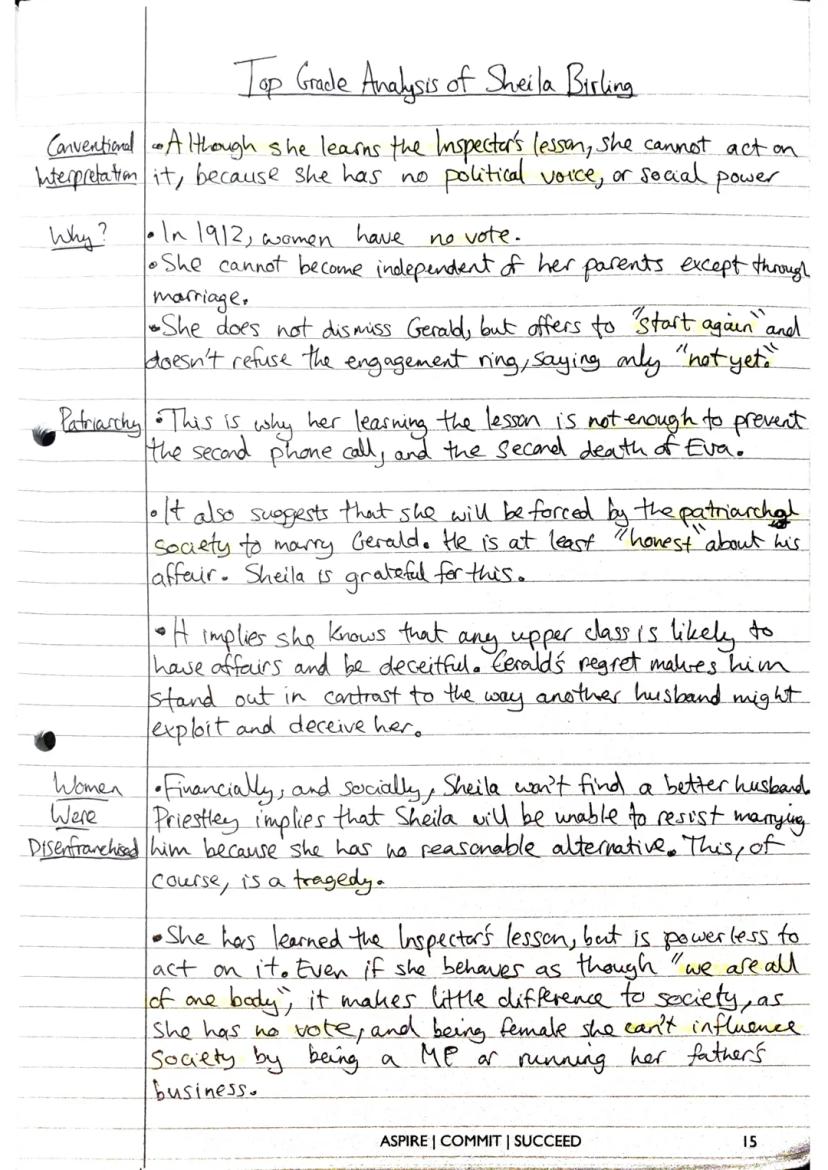 Top Grade Analysis of Sheila Birling
Conventional
Interpretation
• Although she learns the Inspector's lesson, she cannot act on
it, because she has no political voice, or social power
Why?
• In 1912, women have no vote.
• She cannot become independent of her parents except through
marriage.
• She does not dismiss Gerald, but offers to "start again" and
doesn't refuse the engagement ring, saying only "not yet."
Patriarchy
• This is why her learning the lesson is not enough to prevent
the second phone call, and the second death of Eva.
• It also suggests that she will be forced by the patriarchal
society to marry Gerald. He is at least "honest" about his
affair. Sheila is grateful for this.
• It implies she knows that any upper class is likely to
have affairs and be deceitful. Gerald's regret makes him
stand out in contrast to the way another husband might
exploit and deceive her.
Women
Were
Disenfranchised
• Financially, and socially, Sheila won't find a better husband.
Priestley implies that Sheila will be unable to resist marrying
him because she has no reasonable alternative. This, of
course, is a tragedy.
• She has learned the Inspector's lesson, but is powerless to
act on it. Even if she behaves as though "we are all
of one body", it makes little difference to society, as
she has no vote, and being female she can't influence
society by being a MP or running her father's
business.
ASPIRE | COMMIT | SUCCEED
15